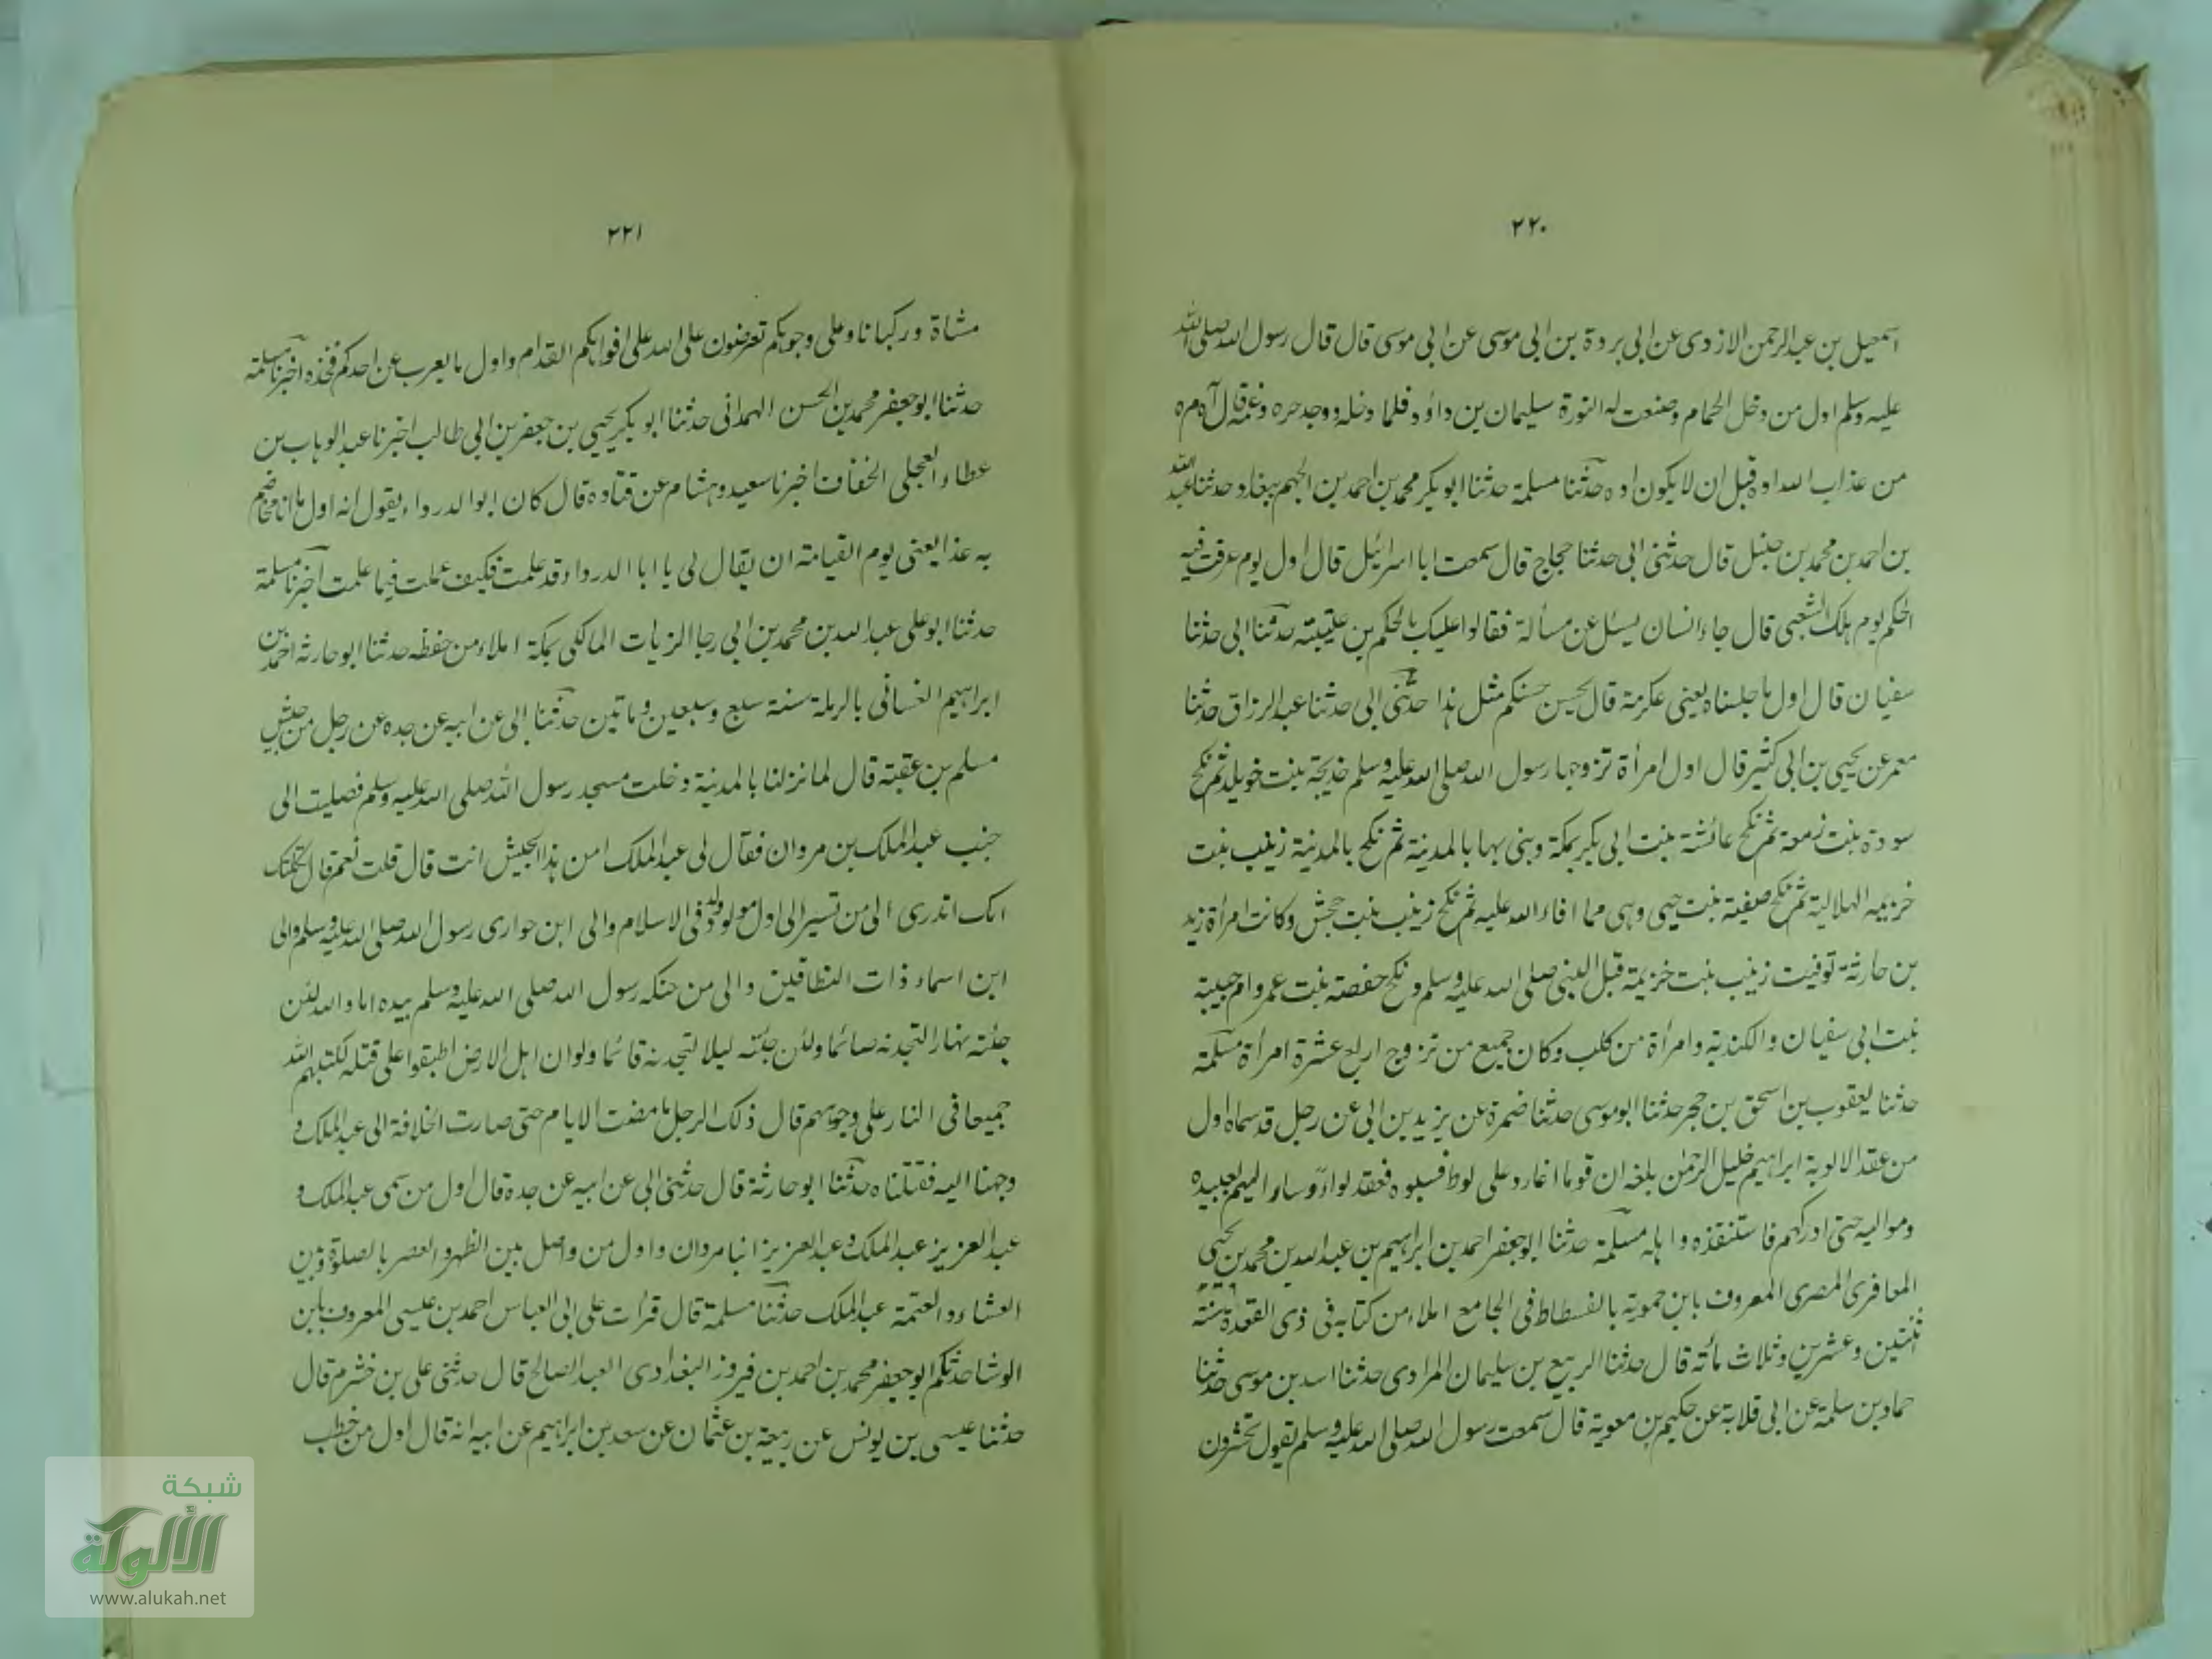 ٢٢٠
اسمعيل بن عبدالرحمن الازدى عن ابى بردة بن ابى موسى عن ابى موسى قال قال رسول الله صلى الله
عليه وسلم اول من دخل الحمام وصنعت له النورة سليمان بن داؤد فلما دخله ووجد حره وغمه قال آه مره
من عذاب الله اوه قبل ان لا يكون اوه حدثنا مسلمة حدثنا ابو بكر محمد بن احمد بن الجهم ببغداد حدثنا عبد الله
بن احمد بن محمد بن حنبل قال حدثنى ابى حدثنا حجاج قال سمعت ابا اسرائيل قال اول يوم عرفت فيه
الحكم يوم هلك الشعبى قال جاء انسان يسئل عن مسألة فقالوا عليك بالحكم بن عتيبة حدثنا ابى حدثنا
سفيان قال اول ما جلسناه يعنى عكرمة قال يحسن حسنكم مثل هذا حدثنى ابى حدثنا عبد الرزاق حدثنا
معمر عن يحيى بن ابى كثير قال اول امرأة تزوجها رسول الله صلى الله عليه وسلم خديجة بنت خويلد ثم نكح
سودة بنت زمعة ثم نكح عائشة بنت ابى بكر بمكة وبنى بها بالمدينة ثم نكح بالمدينة زينب بنت
خزيمه الهلالية ثم نكح صفية بنت حيى وهى مما افاء الله عليه ثم نكح زينب بنت جحش وكانت امرأة زيد
بن حارثة توفيت زينب بنت خزيمة قبل النبى صلى الله عليه وسلم ونكح حفصة بنت عمر وام حبيبة
بنت ابى سفيان والكندية وامرأة من كلب وكان جميع من تزوج اربع عشرة امرأة مسلمة
حدثنا يعقوب بن اسحق بن حجر حدثنا ابو موسى حدثنا ضمرة عن يزيد بن ابى عن رجل قد سماه اول
من عقد الالوية ابراهيم خليل الرحمن بلغه ان قوما اغاروا على لوط فسبوه فعقد لواء وسار اليهم بعبيده
ومواليه حتى ادركهم فاستنقذه واهله مسلمة حدثنا ابو جعفر احمد بن ابراهيم بن عبد الله بن محمد بن يحيى
المعافرى المصرى المعروف بابن حموية بالفسطاط فى الجامع املاء من كتابه فى ذى القعدة سنة
ثنتين وعشرين وثلاث مائة قال حدثنا الربيع بن سليمان المرادى حدثنا اسد بن موسى حدثنا
حماد بن سلمة عن ابى قلابة عن حكيم بن معوية قال سمعت رسول الله صلى الله عليه وسلم يقول تحشرون
٢٢١
مشاة وركبانا وعلى وجوهكم تعرضون على الله على افواهكم القدام واول ما يعرب عن احدكم فخذه اخبرنا مسلمة
حدثنا ابو جعفر محمد بن الحسن الهمدانى حدثنا ابو بكر يحيى بن جعفر بن ابى طالب اخبرنا عبد الوهاب بن
عطاء العجلى الخفاف اخبرنا سعيد وهشام عن قتاده قال كان ابو الدرداء يقول انه اول ما انا مخاصم
به غدا يعنى يوم القيامة ان يقال لى يا ابا الدرداء قد علمت فكيف عملت فيما علمت اخبرنا مسلمة
حدثنا ابو على عبد الله بن محمد بن ابى رجا الزيات المالكى بمكة املاء من حفظه حدثنا ابو حارثه احمد بن
ابراهيم الغسانى بالرملة سنة سبع وسبعين وماتين حدثنا ابى عن ابيه عن جده عن رجل من جيش
مسلم بن عقبة قال لما نزلنا بالمدينة دخلت مسجد رسول الله صلى الله عليه وسلم فصليت الى
جنب عبد الملك بن مروان فقال لى عبد الملك امن هذا الجيش انت قال قلت نعم قال ثكلتك
امك اتدرى الى من تسير الى اول مولود ولد فى الاسلام والى ابن حوارى رسول الله صلى الله عليه وسلم والى
ابن اسماء ذات النطاقين والى من حنكه رسول الله صلى الله عليه وسلم بيده اما والله لئن
جئته نهارا لتجدنه صائما ولئن جئته ليلا لتجدنه قائما ولو ان اهل الارض اطبقوا على قتله لكبهم الله
جميعا فى النار على وجوههم قال ذلك الرجل ما مضت الايام حتى صارت الخلافة الى عبد الملك و
وجهنا اليه فقتلناه حدثنا ابو حارثة قال حدثنى ابى عن ابيه عن جدة قال اول من سمى عبد الملك و
عبد العزيز عبد الملك وعبد العزيز ابنا مروان واول من واصل بين الظهر والعصر بالصلوة وبين
العشاء والعتمة عبد الملك حدثنا مسلمة قال قرات على ابى العباس احمد بن عيسى المعروف بابن
الوشا حدثكم ابو جعفر محمد بن احمد بن فيروز البغدادى العبد الصالح قال حدثنى على بن خشرم قال
حدثنا عيسى بن يونس عن ربيعة بن عثمان عن سعد بن ابراهيم عن ابيه انه قال اول من خطب
شبكة
الألوكة
www.alukah.net